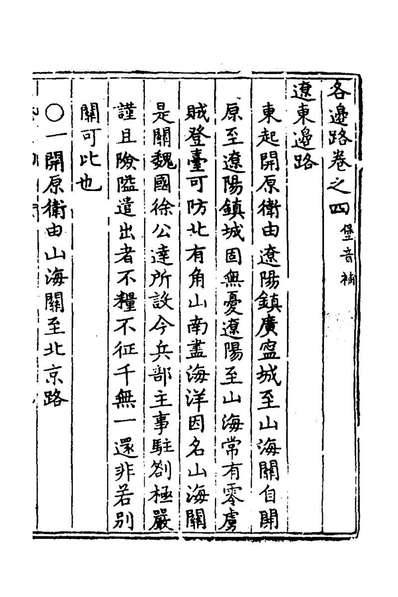 各邊路卷之四 堡音補
遼東邊路
東起開原衛由遼陽鎮廣寍城至山海關自開
原至遼陽鎮城固無憂遼陽至山海常有零虜
賊登臺可防北有角山南盡海洋因名山海關
是關魏國徐公達所設今兵部主事駐劄極嚴
謹且險隘遣出者不糧不征千無一還非若别
關可比也
○一開原衛由山海關至北京路